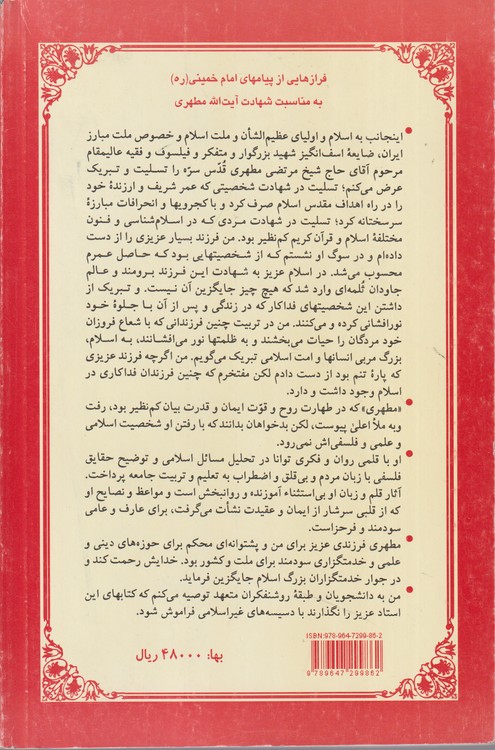 فرازهایی از پیامهای امام خمینی(ره)
به مناسبت شهادت آیت‌الله مطهری
• اینجانب به اسلام و اولیای عظیم‌الشأن و ملت اسلام و خصوص ملت مبارز
ایران، ضایعهٔ اسف‌انگیز شهید بزرگوار و متفکر و فیلسوف و فقیه عالیمقام
مرحوم آقای حاج شیخ مرتضی مطهری قُدّس سرّه را تسلیت و تبریک
عرض می‌کنم؛ تسلیت در شهادت شخصیتی که عمر شریف و ارزندهٔ خود
را در راه اهداف مقدس اسلام صرف کرد و با کجرویها و انحرافات مبارزهٔ
سرسختانه کرد؛ تسلیت در شهادت مردی که در اسلام‌شناسی و فنون
مختلفهٔ اسلام و قرآن کریم کم‌نظیر بود. من فرزند بسیار عزیزی را از دست
داده‌ام و در سوگ او نشستم که از شخصیتهایی بود که حاصل عمرم
محسوب می‌شد. در اسلام عزیز به شهادت این فرزند برومند و عالم
جاودان ثُلمه‌ای وارد شد که هیچ چیز جایگزین آن نیست. و تبریک از
داشتن این شخصیتهای فداکار که در زندگی و پس از آن با جلوهٔ خود
نورافشانی کرده و می‌کنند. من در تربیت چنین فرزندانی که با شعاع فروزان
خود مردگان را حیات می‌بخشند و به ظلمتها نور می‌افشانند، به اسلام،
بزرگ مربی انسانها و امت اسلامی تبریک می‌گویم. من اگرچه فرزند عزیزی
که پارهٔ تنم بود از دست دادم لکن مفتخرم که چنین فرزندان فداکاری در
اسلام وجود داشت و دارد.
• «مطهری» که در طهارت روح و قوّت ایمان و قدرت بیان کم‌نظیر بود، رفت
و به ملأ اعلیٰ پیوست، لکن بدخواهان بدانند که با رفتن او شخصیت اسلامی
و علمی و فلسفی‌اش نمی‌رود.
• او با قلمی روان و فکری توانا در تحلیل مسائل اسلامی و توضیح حقایق
فلسفی با زبان مردم و بی‌قلق و اضطراب به تعلیم و تربیت جامعه پرداخت.
آثار قلم و زبان او بی‌استثناء آموزنده و روانبخش است و مواعظ و نصایح او
که از قلبی سرشار از ایمان و عقیدت نشأت می‌گرفت، برای عارف و عامی
سودمند و فرحزاست.
• مطهری فرزندی عزیز برای من و پشتوانه‌ای محکم برای حوزه‌های دینی و
علمی و خدمتگزاری سودمند برای ملت و کشور بود. خدایش رحمت کند و
در جوار خدمتگزاران بزرگ اسلام جایگزین فرماید.
• من به دانشجویان و طبقهٔ روشنفکران متعهد توصیه می‌کنم که کتابهای این
استاد عزیز را نگذارند با دسیسه‌های غیراسلامی فراموش شود.
ISBN:978-964-7299-86-2
بها: ۴۸۰۰۰ ریال
9 789647 299862